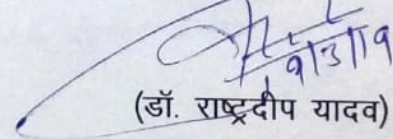 9/3/19
(डॉ. राष्ट्रदीप यादव)